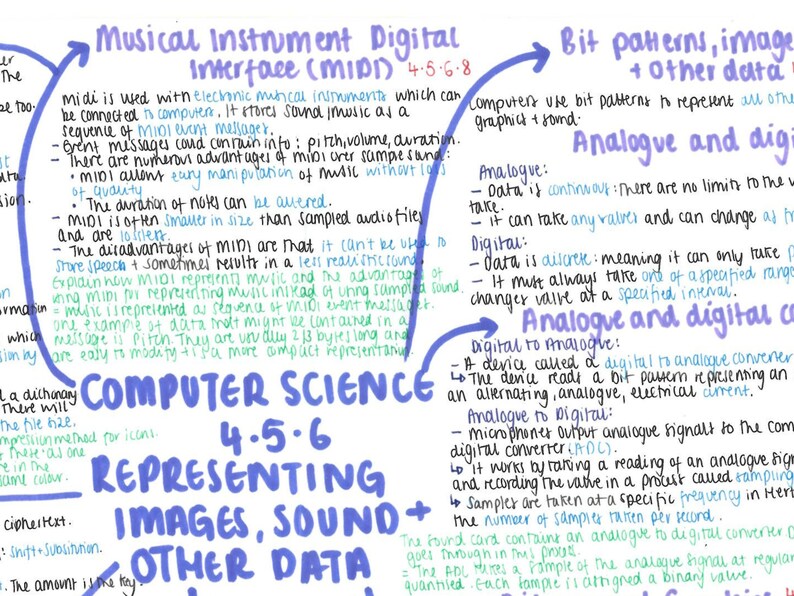 Musical Instrument Digital
Interface (MIDI) 4.5.6.8
midi is used with electronic musical instruments which can
be connected to computers. It stores sound/music as a
sequence of MIDI event messages.
- Event messages could contain info: pitch, volume, duration.
- There are numerous advantages of MIDI over sample sound:
• MIDI allows easy manipulation of music without loss
of quality
• The duration of notes can be altered.
- MIDI is often smaller in size than sampled audio files
and are lossless.
- The disadvantages of MIDI are that it can't be used to
store speech + sometimes results in a less realistic sound.
Explain how MIDI represents music and the advantages of
using midi for representing music instead of using sampled sound.
= music is represented as sequence of MIDI event messages.
one example of data that might be contained in a
message is pitch. They are usually 2/3 bytes long and
are easy to modify + is a more compact representation.
COMPUTER SCIENCE
4.5.6
REPRESENTING
IMAGES, SOUND +
OTHER DATA
Bit patterns, image
+ other data
Computers use bit patterns to represent all othe
graphics + sound.
Analogue and digi
Analogue:
- Data is continuous: There are no limits to the v
take.
- it can take any values and can change as fr
Digital:
- Data is discrete: meaning it can only take p
- It must always take one of a specified range
changes value at a specified interval.
Analogue and digital co
Digital to Analogue:
- A device called a digital to analogue converter
↳ The device reads a bit pattern representing an
an alternating, analogue, electrical current.
Analogue to Digital:
- microphones output analogue signals to the com
digital converter (ADC).
↳ It works by taking a reading of an analogue sign
and recording the value in a process called sampling
↳ Samples are taken at a specific frequency in Hert
the number of samples taken per second.
The sound card contains an analogue to digital converter D
goes through in this process.
= The ADC takes a sample of the analogue signal at regular
quantified. Each sample is assigned a binary value.
The
ze too.
ata.
sion.
ormation
which
sion by
l a dictionary
There will
the file size.
mpression method for icons.
these as one
re in the
same colour.
ciphertext.
: shift + Substitution.
. The amount is the key.